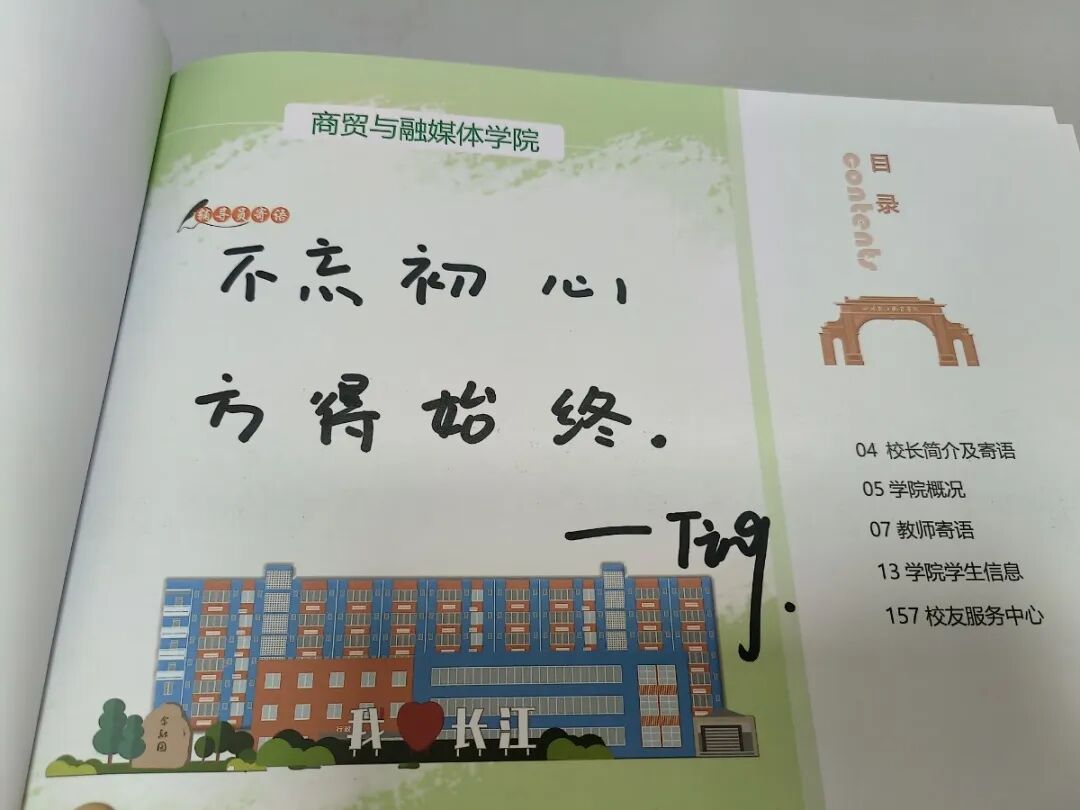 商贸与融媒体学院
辅导员寄语
不忘初心，
方得始终.
—Ting.
我 长江
目录
contents
04 校长简介及寄语
05 学院概况
07 教师寄语
13 学院学生信息
157 校友服务中心